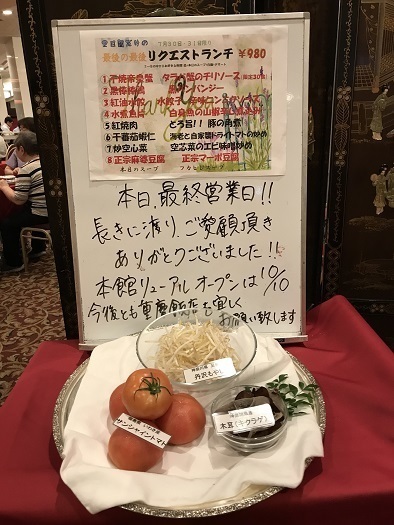 最後の最後 リクエストランチ ¥980
タラバ蟹のチリソース
2 黒椿棒鶏
3 紅油水餃
4 水煮魚片
5 紅焼肉 とろ旨!! 豚の角煮
6 干蕃茄蝦仁 海老と自家製ドライトマトの炒め
7 炒空心菜 空芯菜のエビ味噌炒め
8 正宗麻婆豆腐 正宗マーボ豆腐
本日のスープ フカヒレスープ
本日、最終営業日!!
長きに渡り、ご愛顧頂き
ありがとうございました!!
本館リニューアルオープンは10/10
今後とも重慶飯店を宜しく
お願い致します
丹沢もやし
サンシャイントマト
木耳(キクラゲ)